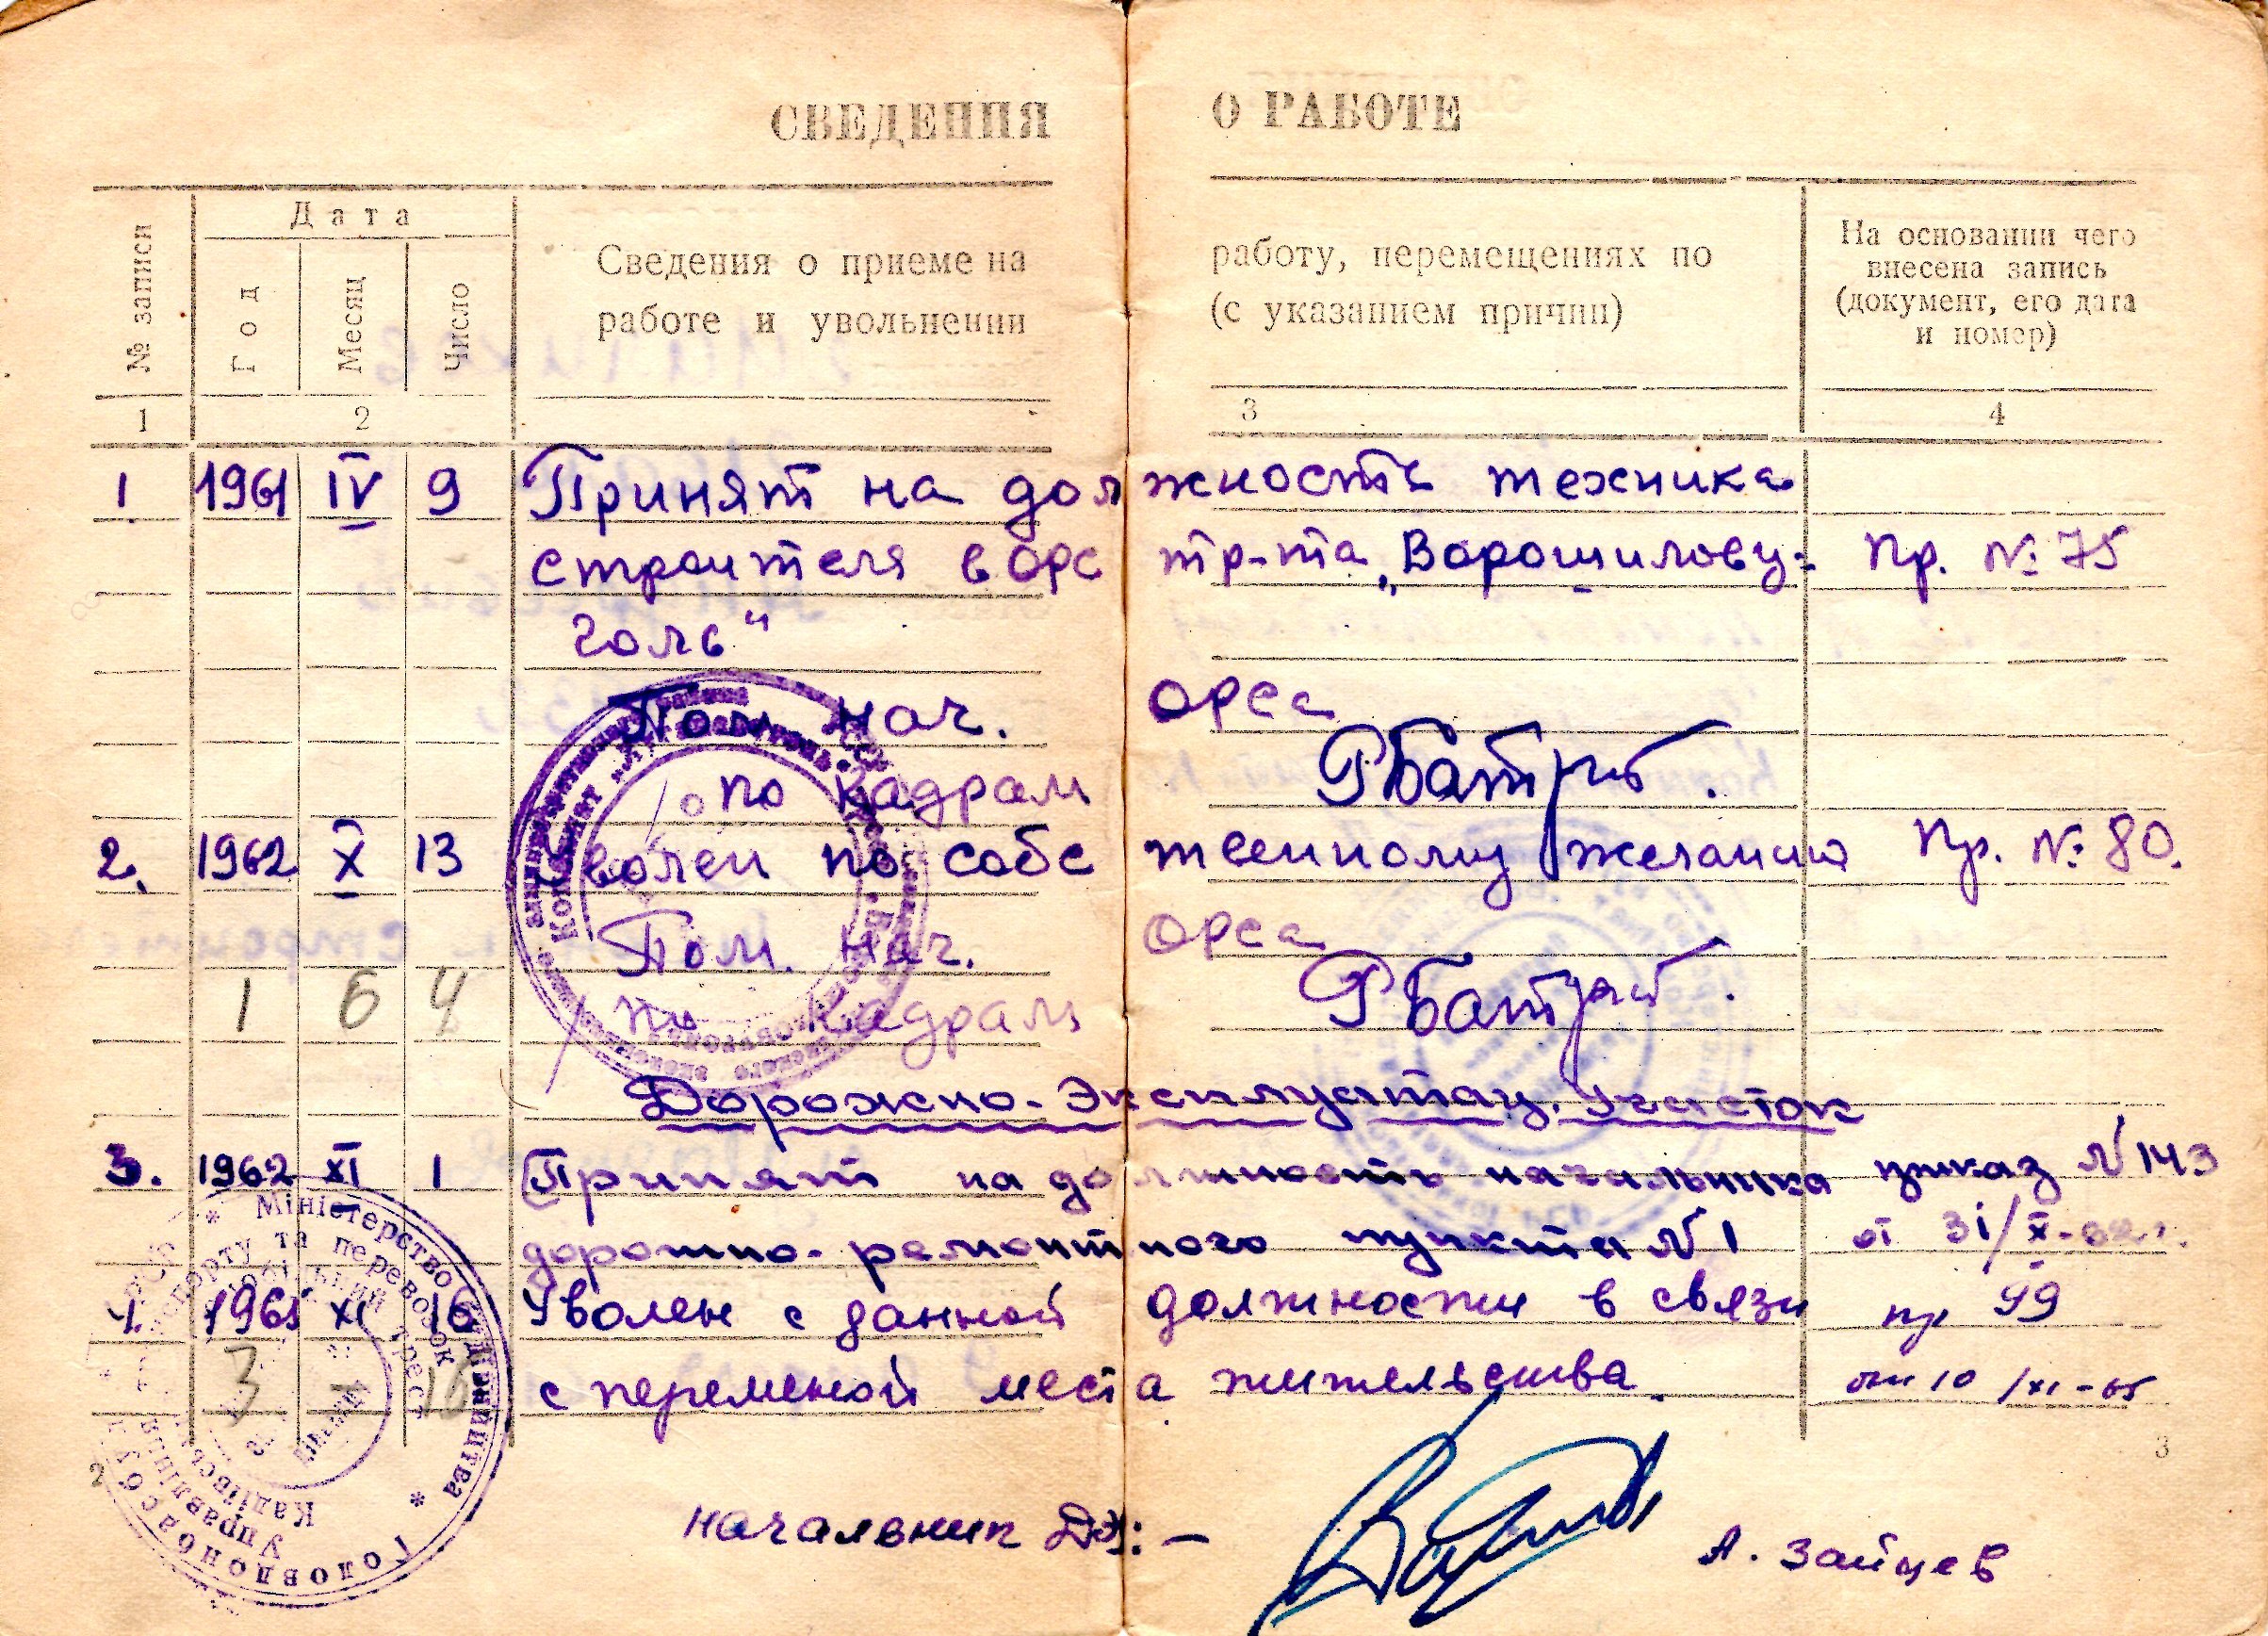 СВЕДЕНИЯ О РАБОТЕ
№ записи
Дата
Год
Месяц
Число
Сведения о приеме на работу, перемещениях по
работе и увольнении (с указанием причин)
На основании чего
внесена запись
(документ, его дата
и номер)
1 2 3 4
1 1961 IV 9 Принят на должность техника
строителя в ОРС тр-та „Ворошилову- Пр. № 75
голь"
Пом. нач. ОРСа
по кадрам
2. 1962 X 13 Уволен по собственному желанию Пр. № 80.
Пом. нач. ОРСа
1 6 4 по кадрам
Дорожно-Эксплуатац. Участок
3. 1962 XI 1 Принят на должность начальника приказ N 143
дорожно-ремонтного пункта N 1 от 31/X-62г.
4. 1965 XI 10 Уволен с данной должности в связи пр 99
3 с переменой места жительства. от 10/XI-65
2
3
начальник ДЭУ: — А. Зайцев
* Міністерство будівництва * Головдонбасбуд
транспорту та перевозок
Управління
Кадіївський
трест
Комбінат